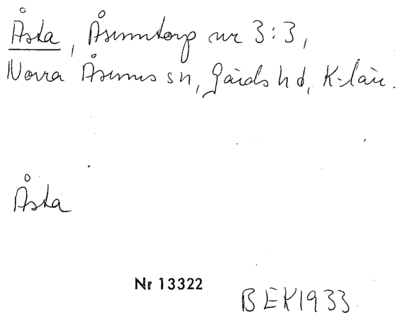 Åsta, Åsumtorp nr 3:3,
Norra Åsums sn, Gärds hd, K-län.
Åsta
Nr 13322
BEK1933